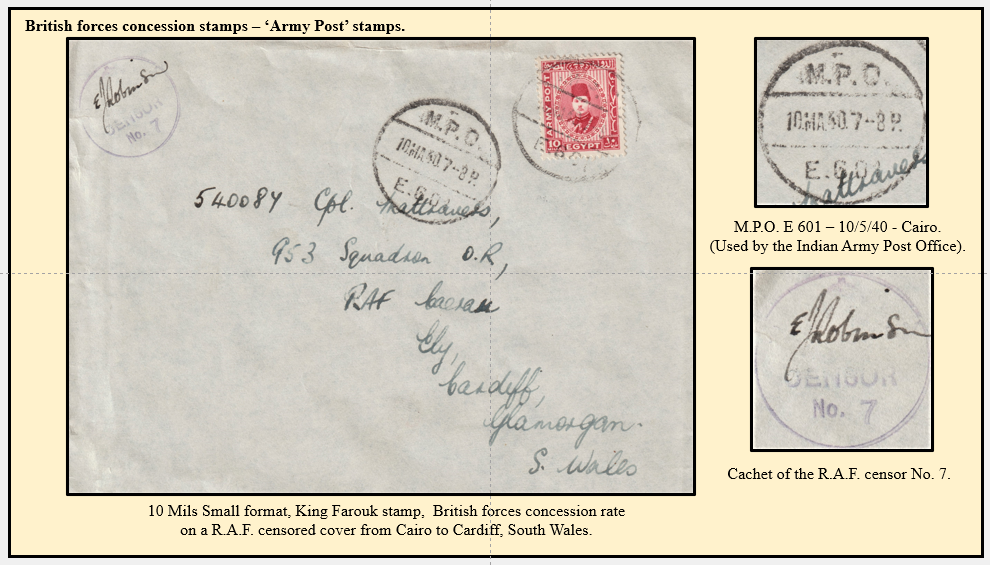 British forces concession stamps – ‘Army Post’ stamps.
E J Robinson
CENSOR
No. 7
M.P.O.
10.MA.40.7-8P.
E.601
ARMY POST
10 EGYPT ١٠
540084 Cpl. Mattravers,
953 Squadron O.R,
RAF Caerau
Ely,
Cardiff,
Glamorgan.
S. Wales
10 Mils Small format, King Farouk stamp,  British forces concession rate
on a R.A.F. censored cover from Cairo to Cardiff, South Wales.
M.P.O.
10.MA.40.7-8P.
E.601
Mattravers
M.P.O. E 601 – 10/5/40 - Cairo.
(Used by the Indian Army Post Office).
E J Robinson
CENSOR
No. 7
Cachet of the R.A.F. censor No. 7.